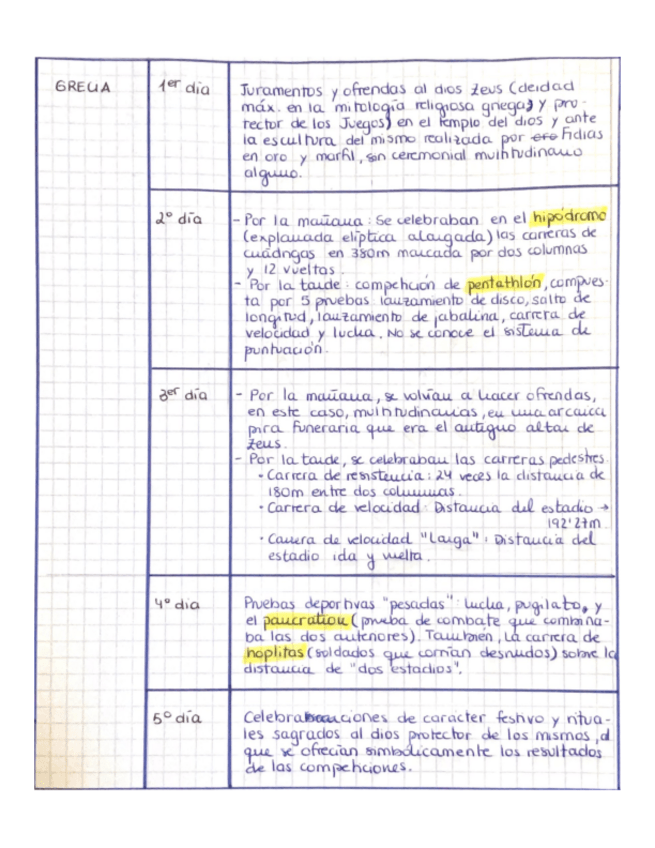 GRECIA
1er día
Juramentos y ofrendas al dios Zeus (deidad
máx. en la mitología religiosa griega) y pro-
tector de los Juegos) en el templo del dios y ante
la escultura del mismo realizada por ero Fidias
en oro y marfil, son ceremonial multitudinario
alguno.
2º día
- Por la mañana: Se celebraban en el hipódromo
(explanada elíptica alargada) las carreras de
cuádrigas en 380m marcada por dos columnas
y 12 vueltas.
- Por la tarde: competición de pentathlón, compues-
ta por 5 pruebas lanzamiento de disco, salto de
longitud, lanzamiento de jabalina, carrera de
velocidad y lucha. No se conoce el sistema de
puntuación.
3er día
- Por la mañana, se volvían a hacer ofrendas,
en este caso, multitudinarias, en una arcaica
pira funeraria que era el antiguo altar de
Zeus.
- Por la tarde, se celebraban las carreras pedestres.
• Carrera de resistencia: 24 veces la distancia de
180m entre dos columnas.
• Carrera de velocidad: Distancia del estadio →
192'27m
• Carrera de velocidad "Larga": Distancia del
estadio ida y vuelta.
4º día
Pruebas deportivas "pesadas": lucha, pugilato, y
el pancration (prueba de combate que combina-
ba las dos anteriores). También, la carrera de
hoplitas (soldados que corrían desnudos) sobre la
distancia de "dos estadios".
5º día
Celebraciones de carácter festivo y ritua-
les sagrados al dios protector de los mismos, al
que se ofrecían simbólicamente los resultados
de las competiciones.